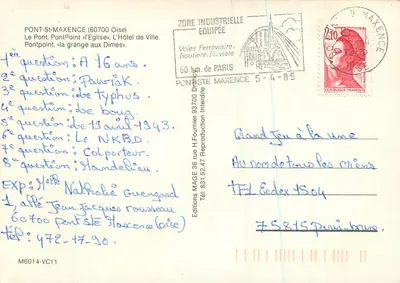 PONT-St-MAXENCE (60700 Oise)
Le Pont, PontPoint «l'Eglise», L'Hôtel de Ville.
Pontpoint, «la grange aux Dîmes».
1ère question: A 16 ans.
2ème question: Pawiak.
3ème question: de typhus.
4ème question: de boue
5ème question: le 13 avril 1943.
6ème question: Le N.K.B.D.
7ème question: Colporteur.
8ème question: Mandelieu.
EXP: Melle Nathalie
1, allée Jean Jacques rousseau
60700 pont ste Maxence (oise)
tel: 472-17-90.
M6014-VC11
Editions MAGE, 38 rue H. Fournier 93700 Drancy
Tél: 831.52.47 Reproduction Interdite
ZONE INDUSTRIELLE
EQUIPÉE
Voies Ferroviaire-
Routière, Fluviale
60 km de PARIS
PONT-STE MAXENCE 5-4-85
MAXENCE
OISE
2,10
REPUBLIQUE FRANÇAISE
Grand Jeu à la une
Au nom de tous les miens
TF1 Cedex 1504
75815 Paris brune